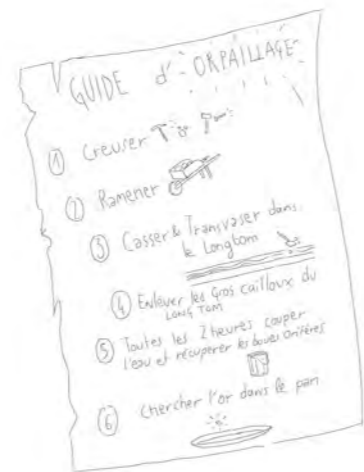 GUIDE d'ORPAILLAGE
1 Creuser
2 Ramener
3 Casser & Transvaser dans
le Longtom
4 Enlever les Gros cailloux du
LONG TOM
5 Toutes les 2 heures couper
l'eau et récupérer les boues Orifères
6 Chercher l'or dans le pan